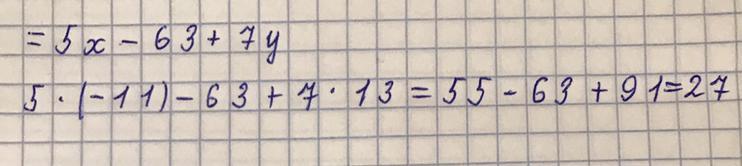 = 5x - 63 + 7y
5 · (-11) - 63 + 7 · 13 = 55 - 63 + 91 = 27